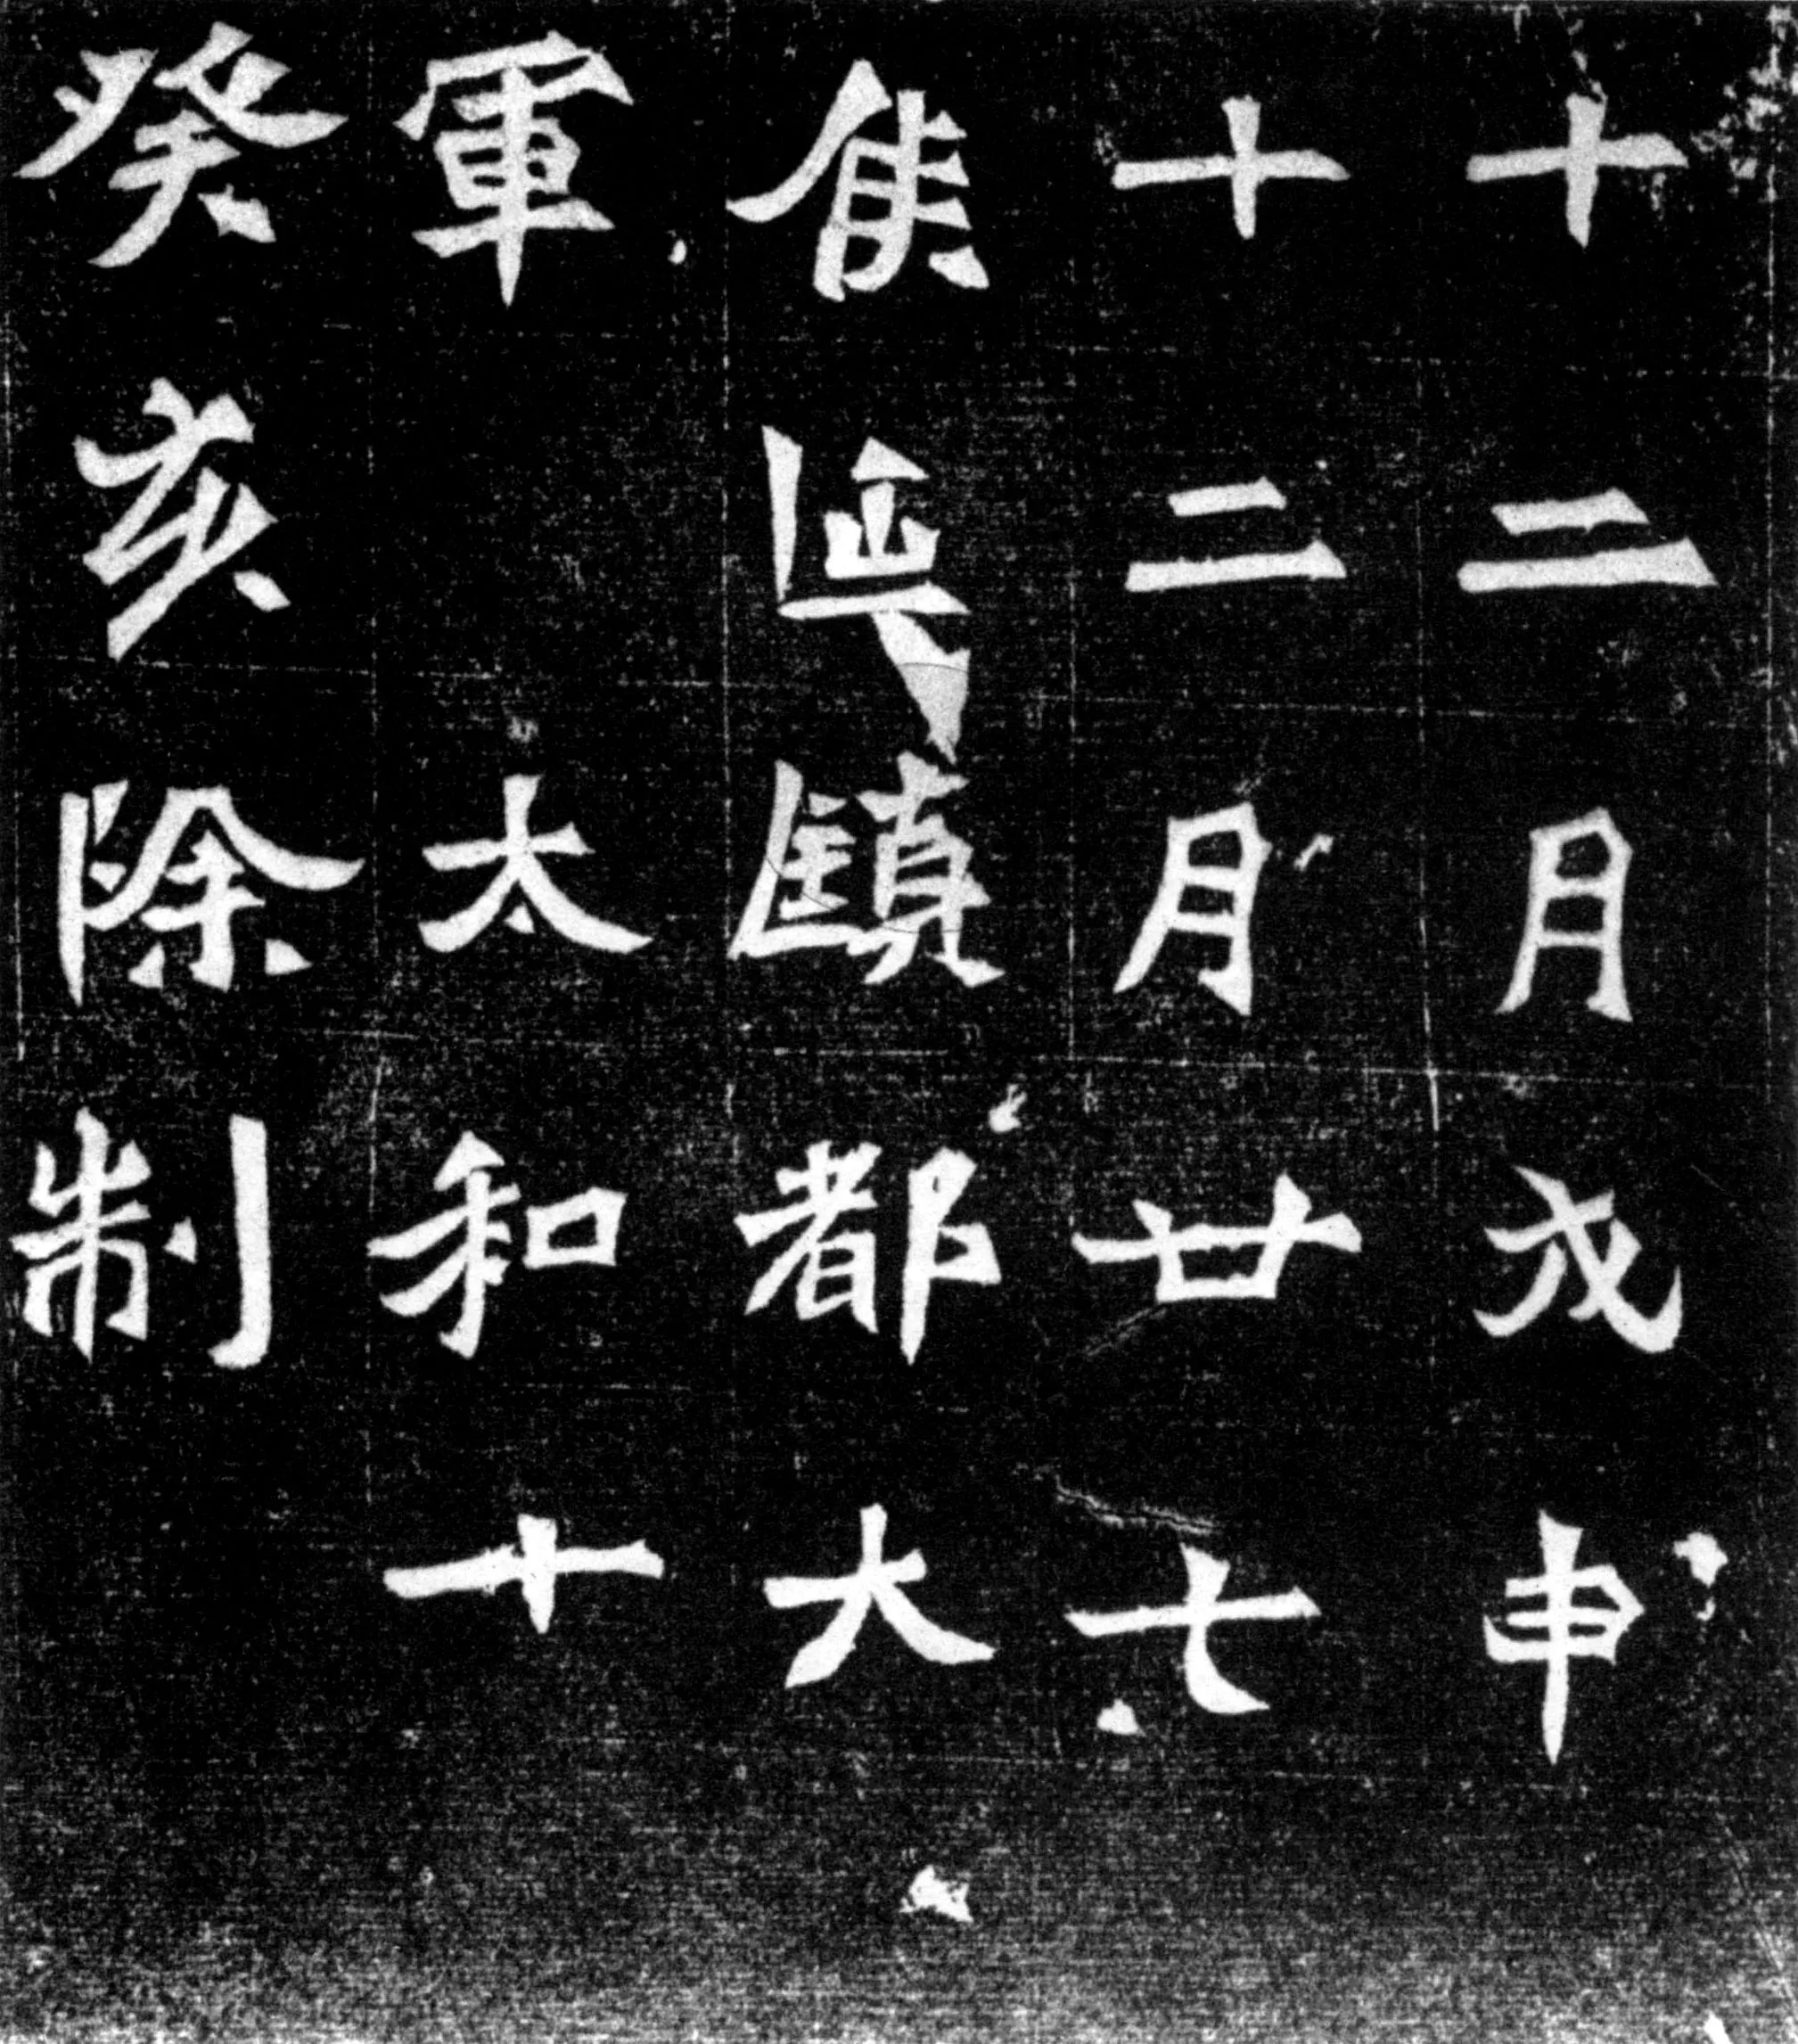 十二月戊申
十二月廿七
鎮都大
軍 太和十
癸亥除制